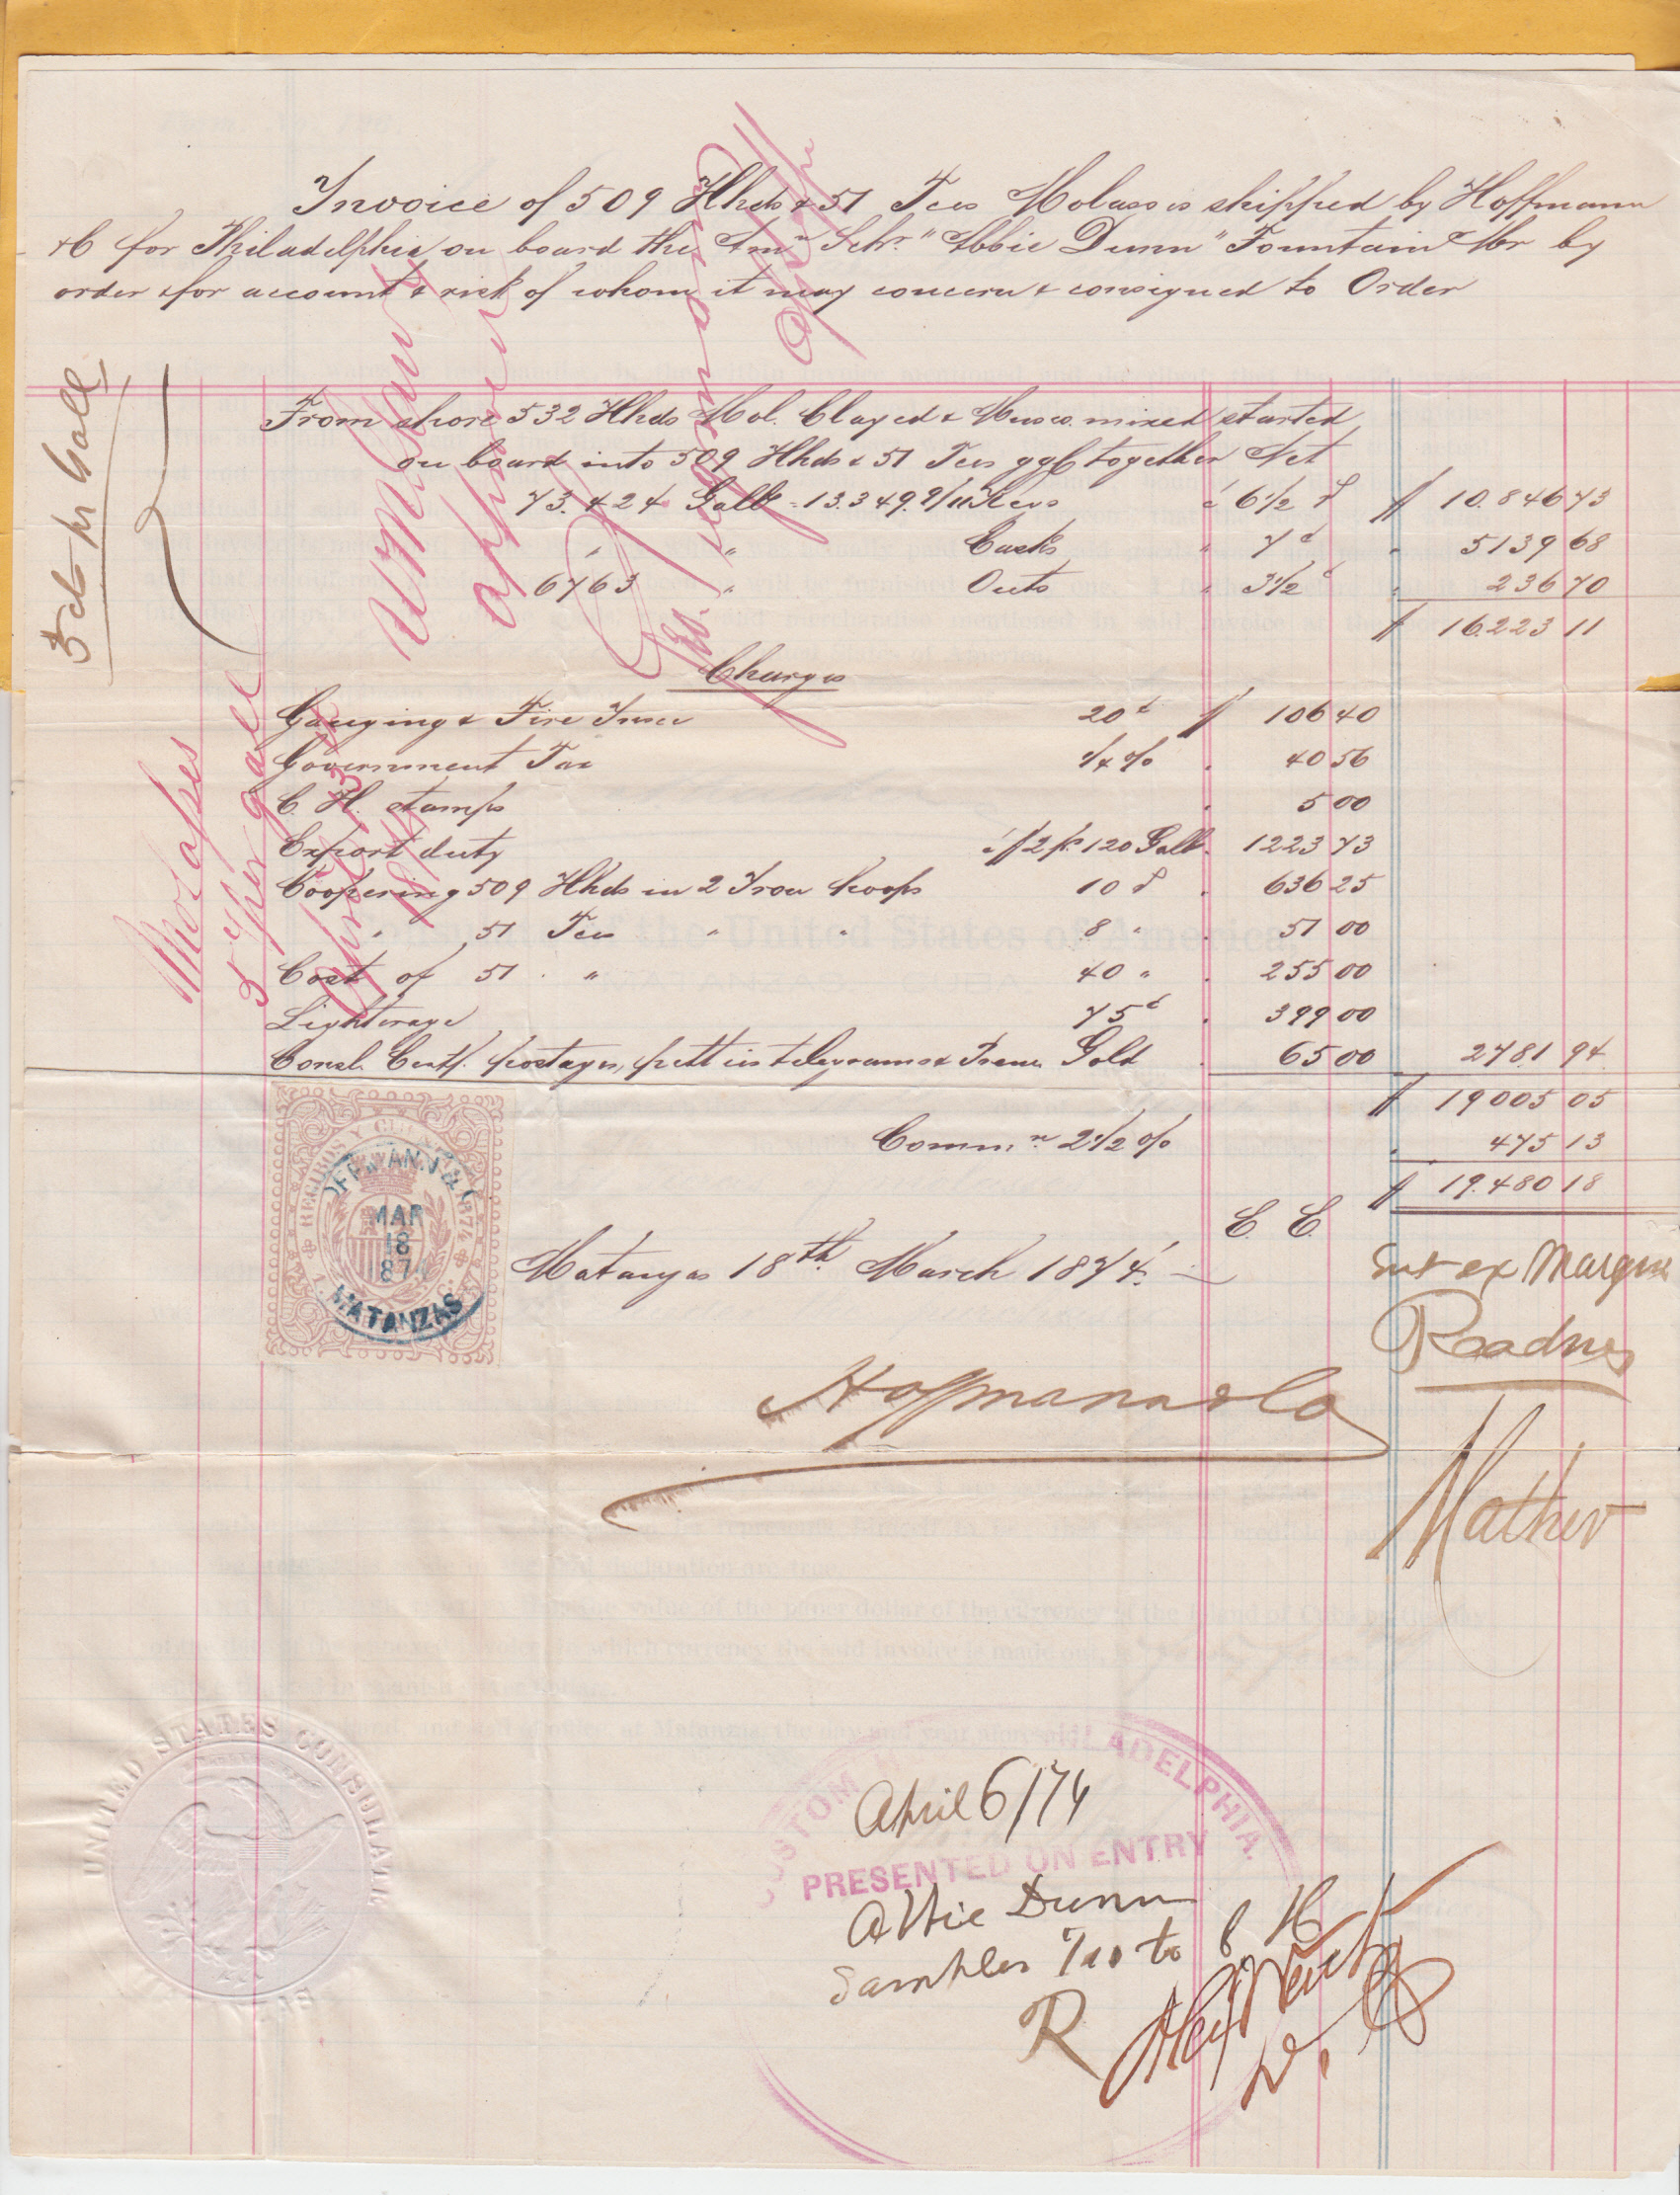 Invoice of 509 Hhds & 51 Tces Molasses shipped by Hoffmann
& C for Philadelphia on board the Amn Schr. "Abbie Dunn" Fountain Mr by
order & for account & risk of whom it may concern & consigned to Order
5 cts pr Gall
From shore 532 Hhds Mol. Clayed & Musco. mixed started
on board into 509 Hhds & 51 Tces together Net
73.424 Galls = 13.349.9/11 Kegs à 6 1/2 $ 10.846 73
" " Casks " 7 c " 5139 68
6763 " Outs " 3 1/2 c " 236 70
$ 16.223 11
Charges
Gauging & Fire Insce 20 c $ 106 40
Government Tax 1/4 % " 40 56
C. H. stamps " 5 00
Export duty à $2 pr 120 Galls " 1223 73
Coopering 509 Hhds in 2 Iron hoops 10 " 636 25
" 51 Tces " " 8 " " 51 00
Cost of 51 " " 40 " " 255 00
Lighterage 75 c " 399 00
Consl. Certf. postages, petties telegrams & Gold " 65 00 2781 94
$ 19005 05
Commn 2 1/2 % " 475 13
$ 19.480 18
E. E.
Matanzas 18th March 1874.
Hoffmann & Co
Molasses
5 c per gall
April 13th
1874
RECIBOS Y CUENTAS 1874
HOFFMANN & C
MAR
18
1874
MATANZAS
Mather
UNITED STATES CONSULATE
CUSTOM HOUSE PHILADELPHIA.
PRESENTED ON ENTRY
April 6/74
Abbie Dunn
Samples to C H
R